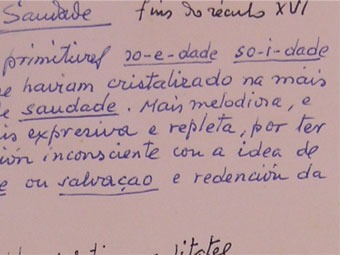 Saudade fins do século XVI
primitivas so-e-dade so-i-dade
e haviam cristalizado na mais
e saudade. Mais melodiosa, e
is expresiva e repleta, por ter
ción inconsciente con a idea de
e ou salvaçao e redención da